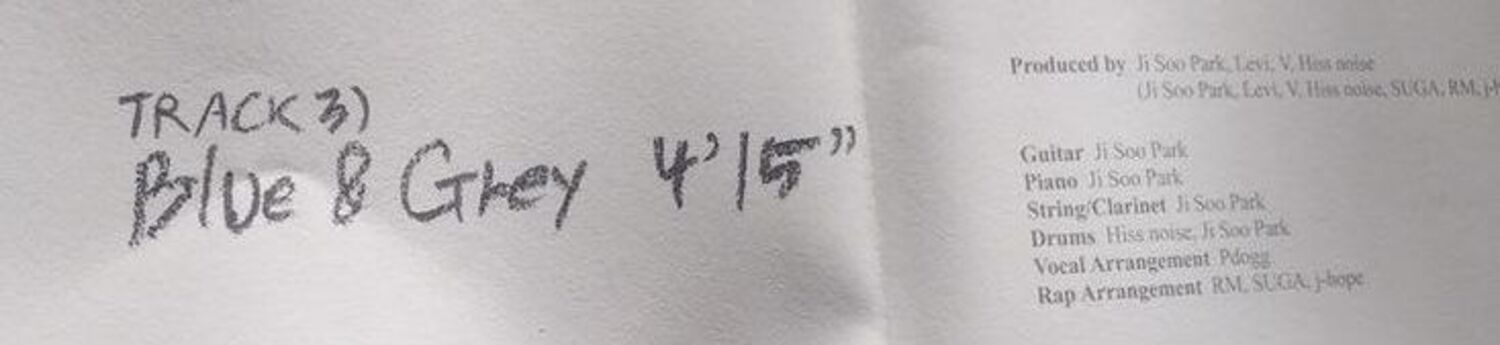 TRACK 3)
Blue & Grey 4'15"
Produced by Ji Soo Park, Levi, V, Hiss noise
(Ji Soo Park, Levi, V, Hiss noise, SUGA, RM, j-h
Guitar Ji Soo Park
Piano Ji Soo Park
String/Clarinet Ji Soo Park
Drums Hiss noise, Ji Soo Park
Vocal Arrangement Pdogg
Rap Arrangement RM, SUGA, j-hope